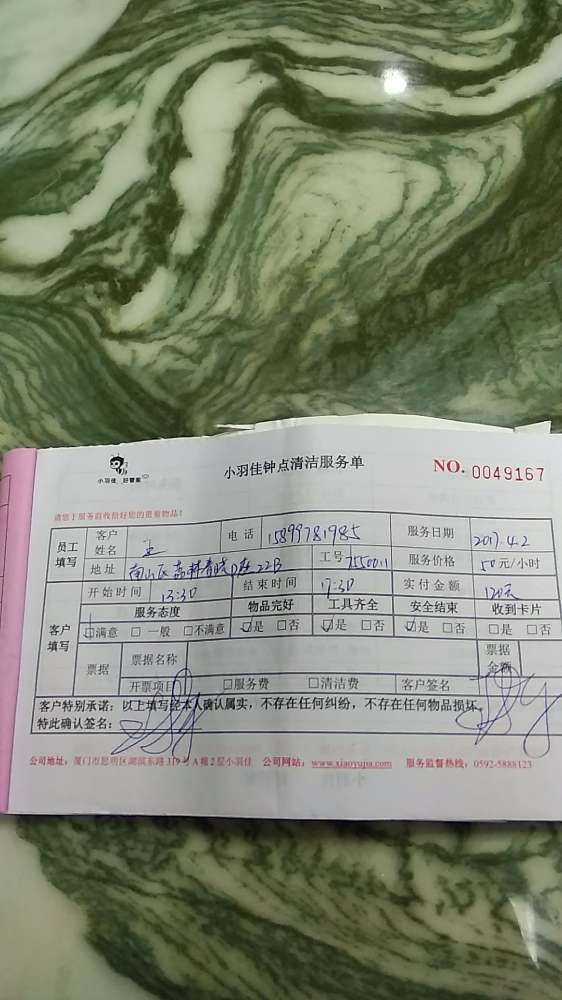 小羽佳 好管家
小羽佳钟点清洁服务单
NO. 0049167
请您于服务前收拾好您的贵重物品!
员工填写 客户姓名 王 电话 15899781985 服务日期 2017.4.2
地址 南山区 22B 工号 755001 服务价格 50元/小时
开始时间 13:30 结束时间 17:30 实付金额
客户填写 服务态度 物品完好 工具齐全 安全结束 收到卡片
满意 一般 不满意 是 否 是 否 是 否 是 否
票据 票据名称 票据金额
开票项目 服务费 清洁费 客户签名
客户特别承诺:以上填写经本人确认属实,不存在任何纠纷,不存在任何物品损坏。
特此确认签名:
公司地址:厦门市思明区湖滨东路319号A幢2层小羽佳 公司网站:www.xiaoyujia.com 服务监督热线:0592-5888123